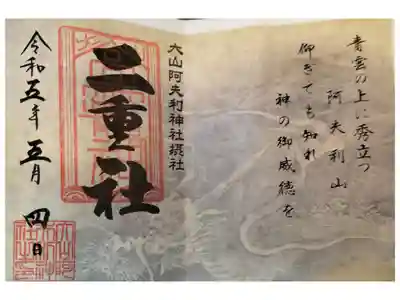 青雲の上に秀立つ
阿夫利山
仰ぎても知れ
神の御威徳を
大山阿夫利神社摂社
二重社
令和五年五月四日